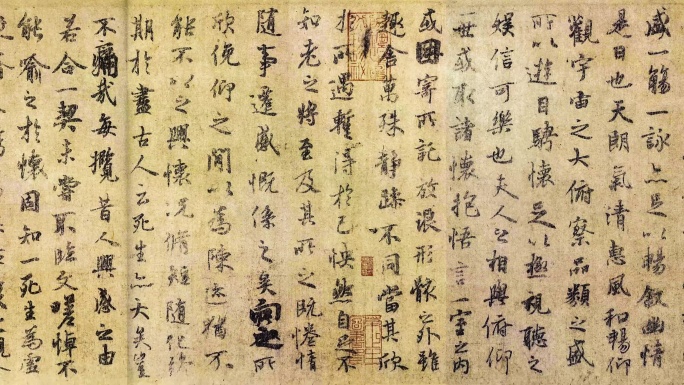 盛一觴一詠亦足以暢敘幽情
是日也天朗氣清惠風和暢仰
觀宇宙之大俯察品類之盛
所以遊目騁懷足以極視聽之
娛信可樂也夫人之相與俯仰
一世或取諸懷抱悟言一室之內
或因寄所託放浪形骸之外雖
趣舍萬殊靜躁不同當其欣
於所遇暫得於己怏然自足不
知老之將至及其所之既惓情
隨事遷感慨係之矣向之所
欣俛仰之間以為陳迹猶不
能不以之興懷況脩短隨化終
期於盡古人云死生亦大矣豈
不痛哉每攬昔人興感之由
若合一契未嘗不臨文嗟悼不
能喻之於懷固知一死生為虛